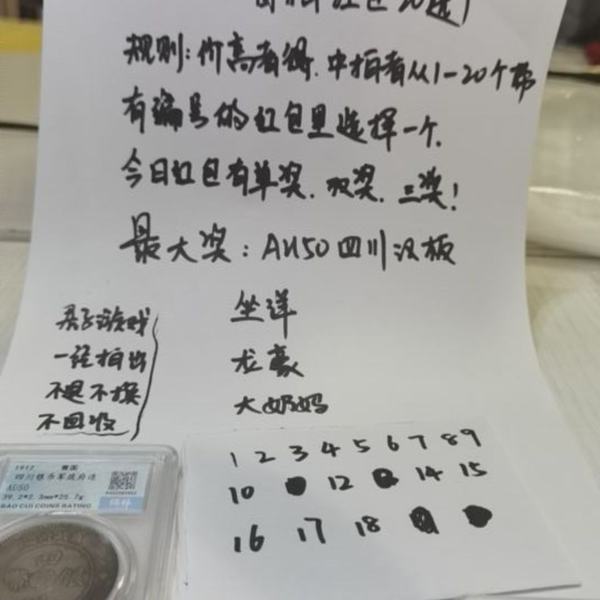 规则:价高者得.中拍者从1-20个带
有编号的红包里选择一个.
今日红包有单奖.双奖.三奖!
最大奖:AU50四川汉板
坐洋
龙毫
大奶妈
一经拍出
不退不换
不回收
1 2 3 4 5 6 7 8 9
10 12 14 15
16 17 18
1912
四川银币军政府造
AU50
39.2*2.3mm*25.7g
BAO CUI COINS RATING